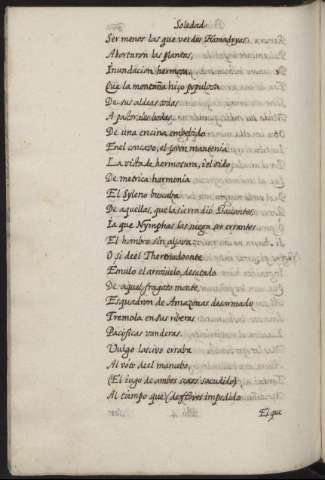 Soledad
Ser menos las que verdes Hamadryas
Abortaron las plantas,
Inundacion hermosa
Que la montaña hiço populosa
De sus aldeas todas
A pastorales bodas.
De una encina embebido
En el concavo, el joven mantenia
La vista de hermosura, i el oido
De metrica harmonia
El Syleno buscaba
De aquellas, que la sierra diò Bacantes,
Ia que Nymphas las niega ser errantes
El hombro sin aljava,
O si deel Thermodoonte
Émulo el arroiuelo, desatado
De aquel fragoso monte,
Esquadron de Amazonas desarmado
Tremola en sus riberas
Pacificas vanderas.
Vulgo lascivo erraba
Al voto deel mancebo,
(El iugo de ambos sexos sacudido)
Al tiempo que (de flores impedido
El que